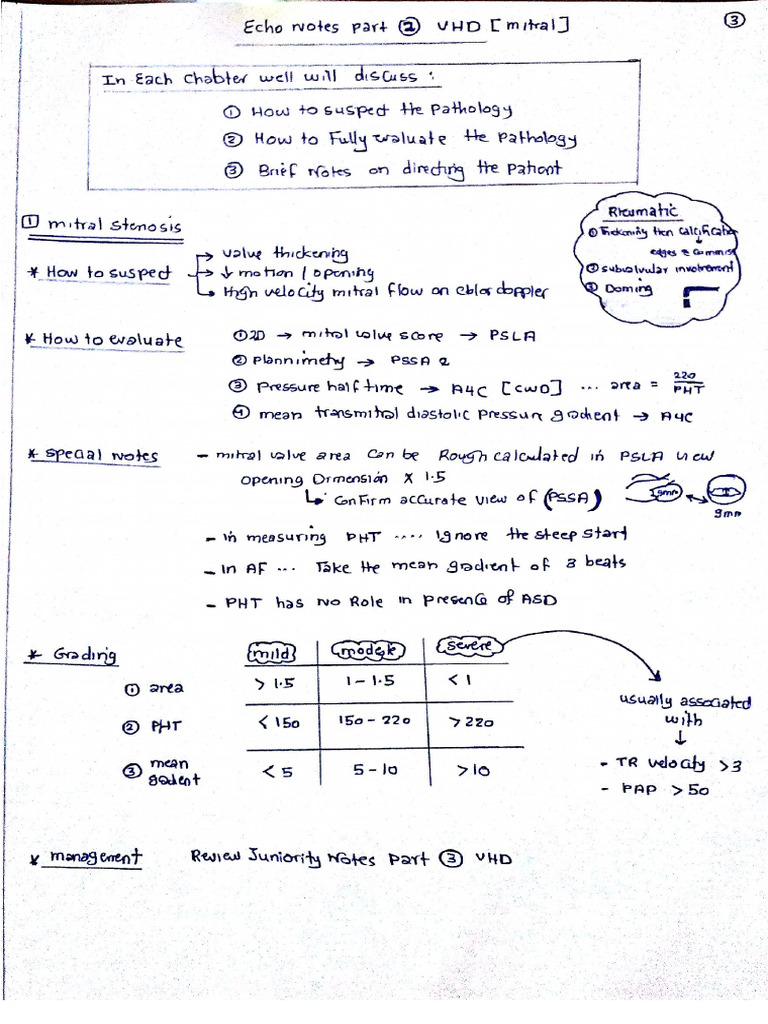 Echo Notes part ② VHD [mitral]
③
In Each Chabter well will discuss :
① How to suspect the Pathology
② How to Fully evaluate the Pathology
③ Brief Notes on directing the Patient
① mitral stenosis
* How to suspect → value thickening
→ ↓ motion / opening
→ High velocity mitral flow on color doppler
Rheumatic
① Thickening then calcification
↓
edges & commis
② subvalvular involvement
③ Doming
* How to evaluate ① 2D → mitral valve score → PSLA
② Plannimetry → PSSA 2
③ Pressure half time → A4C [CWD] ... area = 220/PHT
④ mean transmitral diastolic Pressure gradient → A4C
* Special Notes - mitral valve area can be Rough calculated in PSLA view
opening Dimension × 1.5
↳ confirm accurate view of (PSSA)
9mm
9mm
- in measuring PHT .... Ignore the steep start
- In AF ... Take the mean gradient of 3 beats
- PHT has No Role in presence of ASD
* Grading mild severe
① area > 1.5 1 – 1.5 < 1
② PHT < 150 150 – 220 > 220
③ mean < 5 5 – 10 > 10
gradent
usually associated
with
↓
- TR velocity > 3
- PAP > 50
* management Review Juniority Notes part ③ VHD